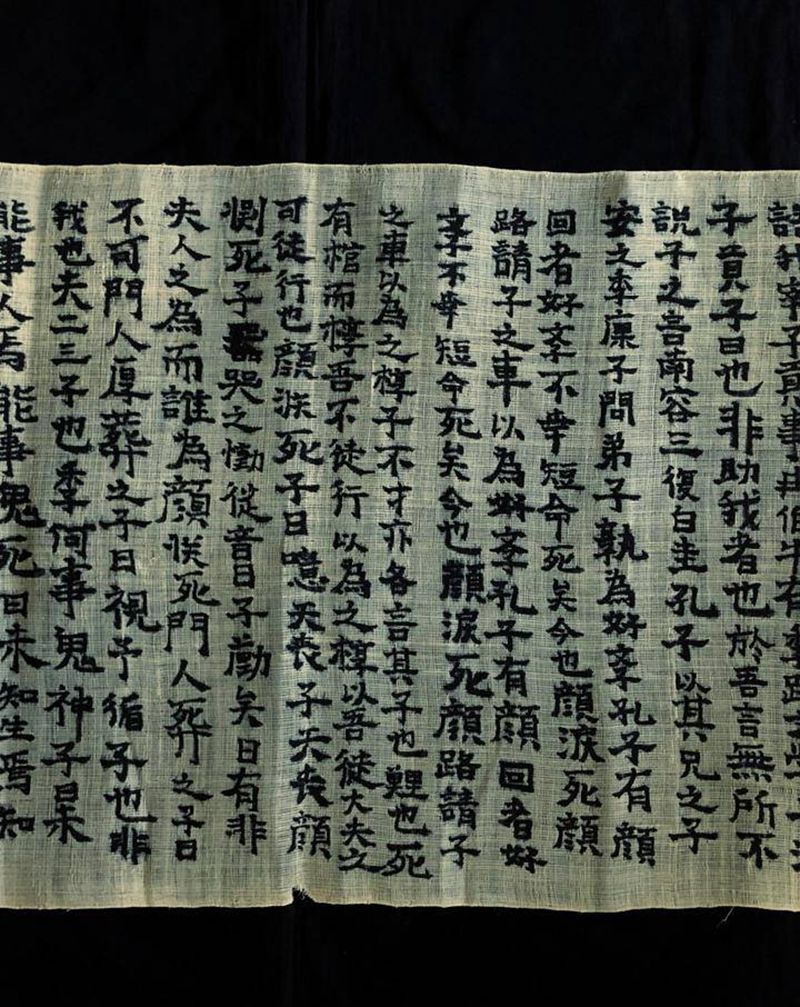 宰子貢事冉伯牛有季路文學子
子貢子曰也非助我者也於吾言無所不
說子之言南容三復白圭孔子以其兄之子
安之季康子問弟子孰為好斈孔子有顏
回者好斈不幸短命死矣今也顏淚死顏
路請子之車以為斈孔子有顏回者好
斈不幸短命死矣今也顏淚死顏路請子
之車以為之椁子不才亦各言其子也鯉也死
有棺而椁吾不徒行以為之椁以吾徒大夫之
可徒行也顏淡死子曰噫天喪子天喪顏
惻死子哭之慟從音曰子勤矣曰有非
夫人之為而誰為顏淡死門人葬之子曰
不可門人厚葬之子曰視予循子也非
我也夫二三子也季何事鬼神子曰未
能事人焉能事鬼死曰未知生焉知